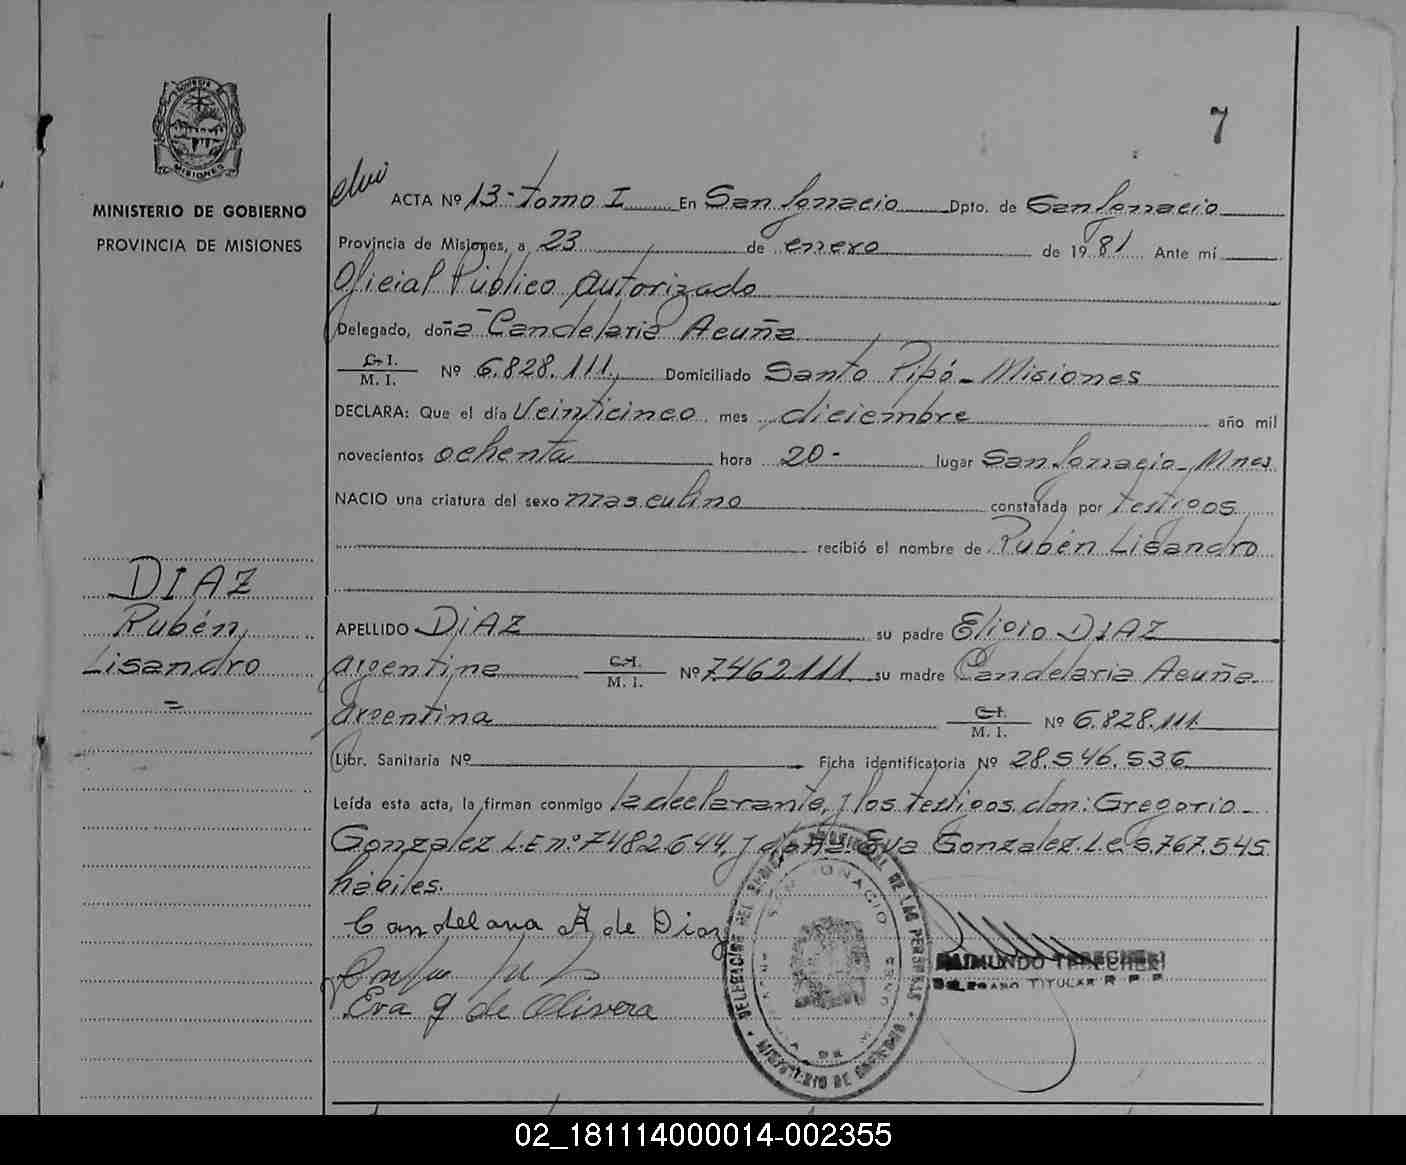 7
MISIONES
MINISTERIO DE GOBIERNO
PROVINCIA DE MISIONES
ACTA Nº 13 - Tomo I En San Ignacio Dpto. de San Ignacio
Provincia de Misiones, a 23 de enero de 1981 Ante mí
Oficial Público Autorizado
Delegado, doña Candelaria Acuña
C. I.
M. I. Nº 6.828.111 Domiciliado Santo Pipó - Misiones
DECLARA: Que el día Veinticinco mes diciembre año mil
novecientos ochenta hora 20 - lugar San Ignacio - Mnes
NACIO una criatura del sexo masculino constatada por testigos
recibió el nombre de Rubén Lisandro
DIAZ
Rubén
Lisandro
=
APELLIDO DIAZ su padre Eligio DIAZ
argentino C. I.
M. I. Nº 7462111 su madre Candelaria Acuña
argentina C. I.
M. I. Nº 6.828.111
Libr. Sanitaria Nº Ficha identificatoria Nº 28.546.536
Leída esta acta, la firman conmigo la declarante, y los testigos don: Gregorio -
Gonzalez L.E nº 7482.644, y doña Eva Gonzalez. L.C 6.767.545
hábiles.
Candelaria A de Diaz
Eva G de Olivera
DELEGACION DEL REGISTRO PROVINCIAL DE LAS PERSONAS
SAN IGNACIO
MINISTERIO DE GOBIERNO
RAIMUNDO
DELEGADO TITULAR R P P
02_181114000014-002355